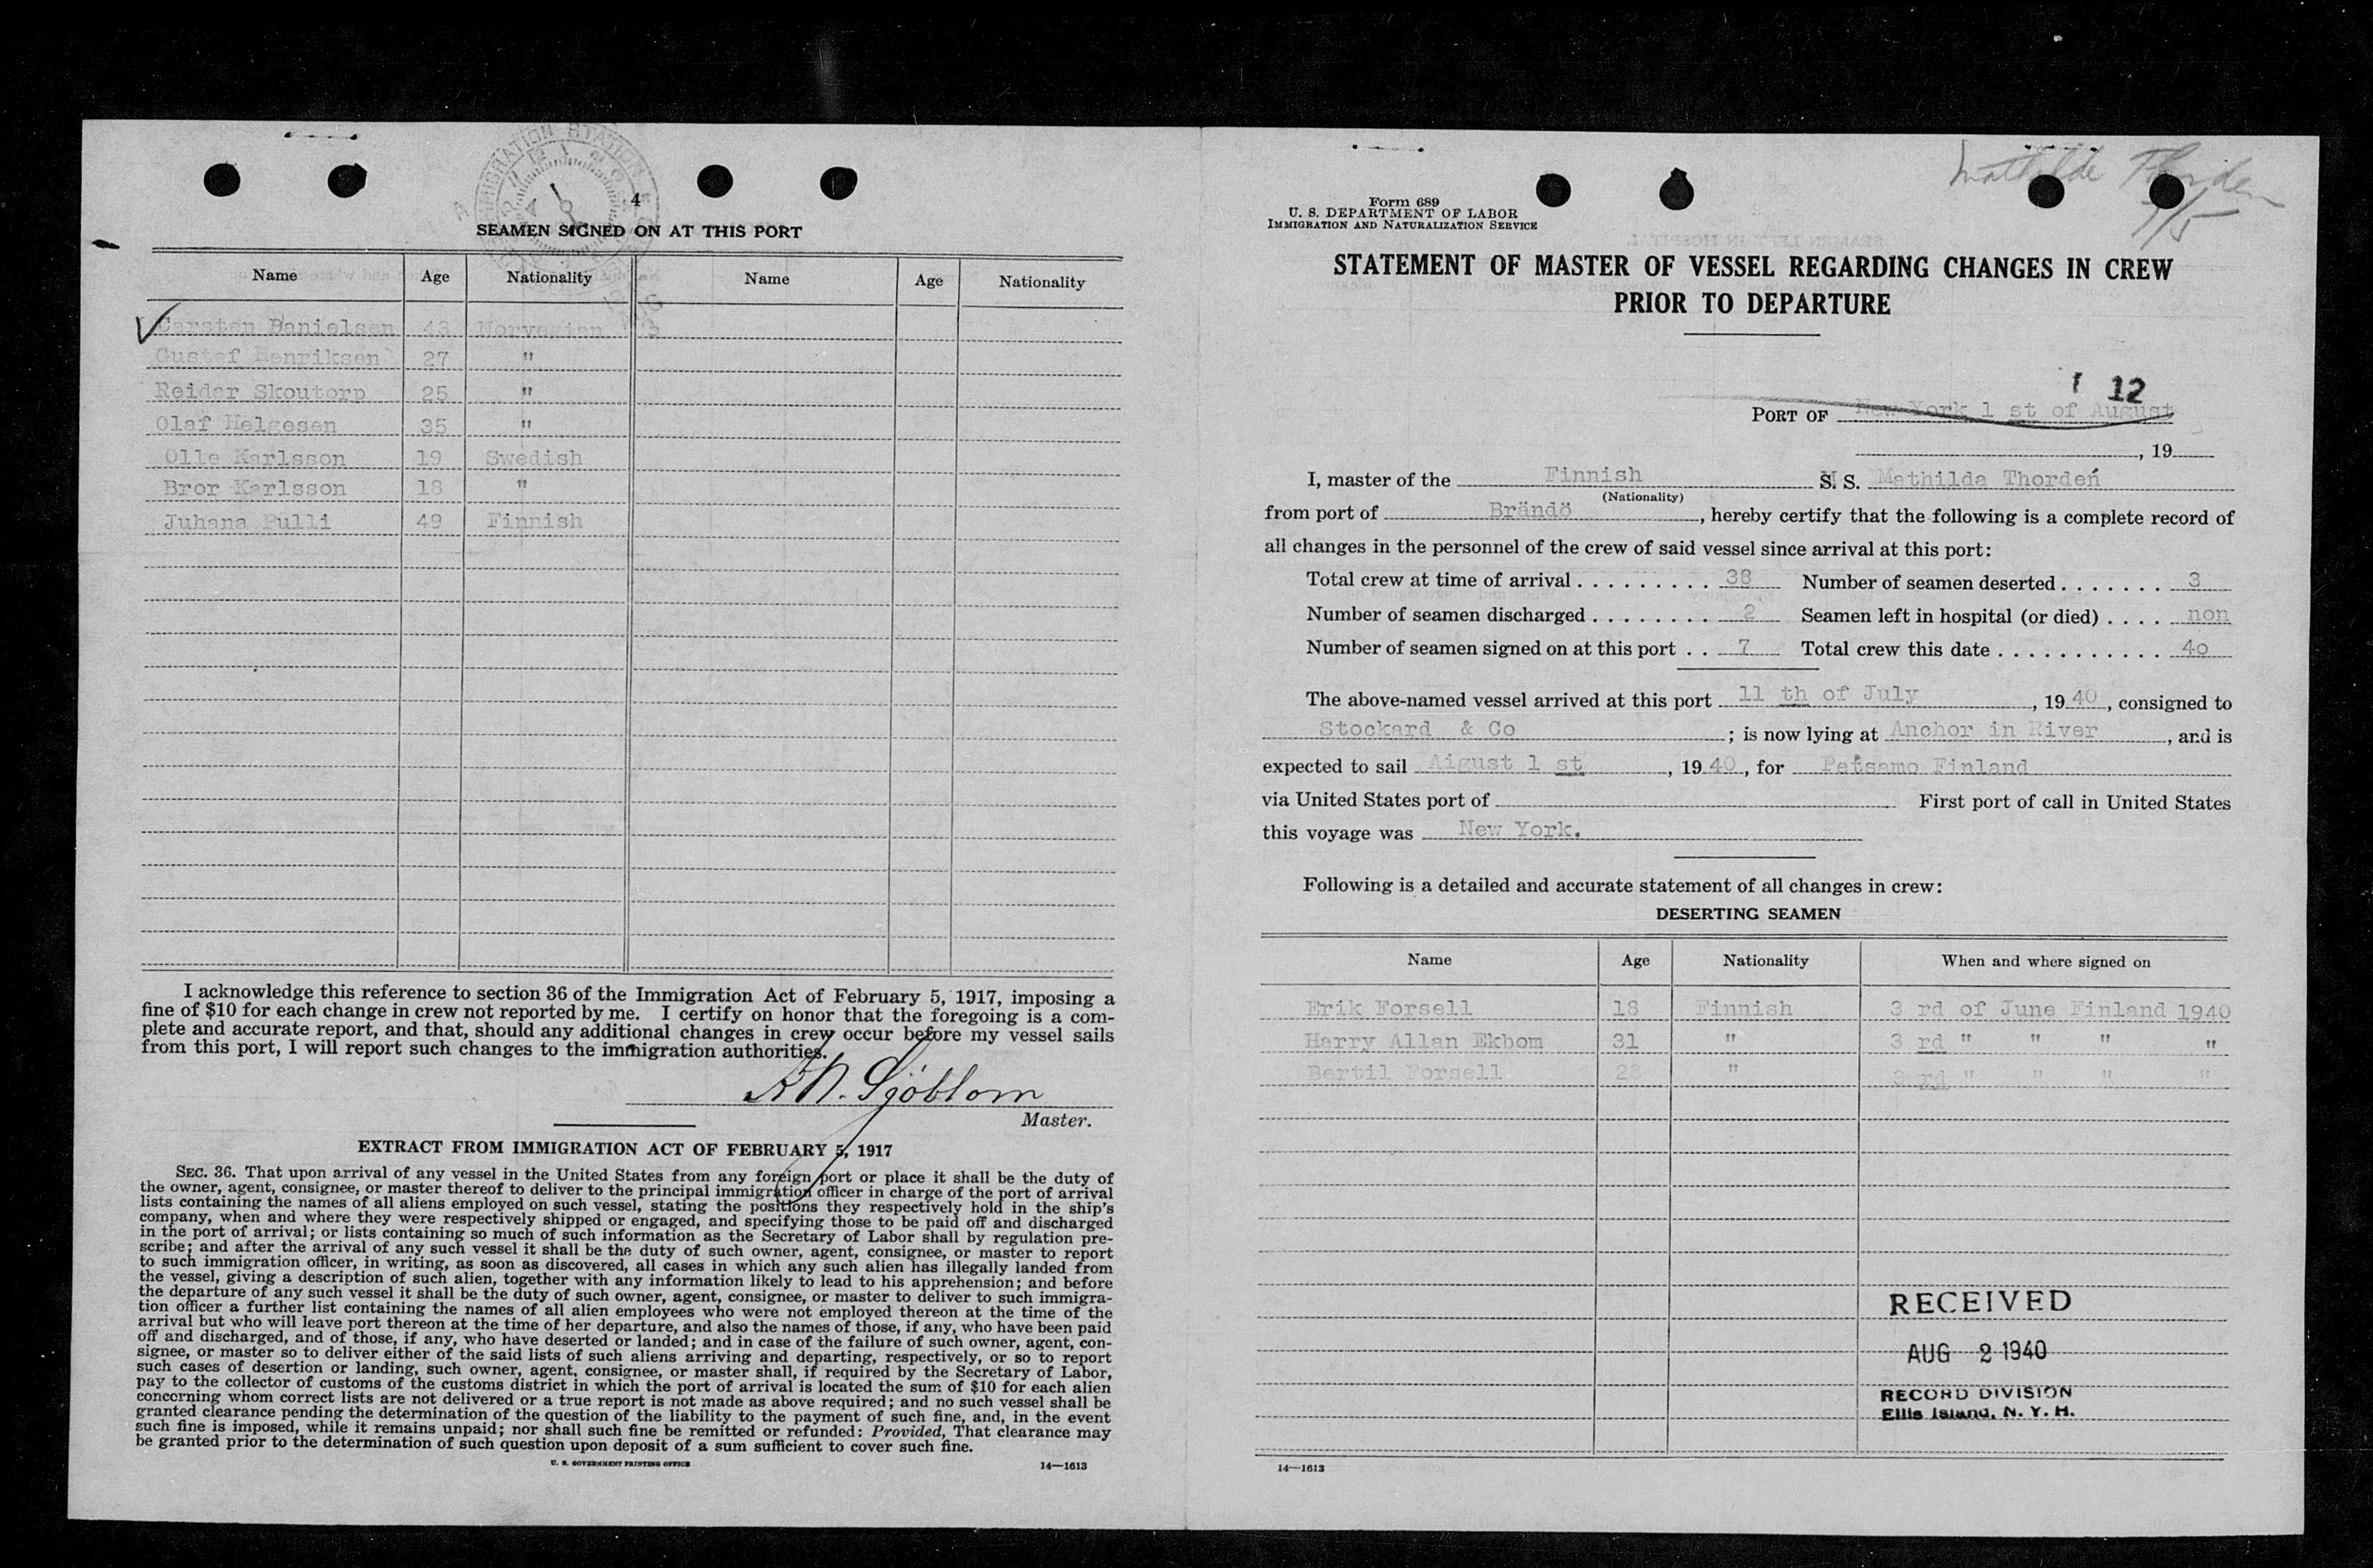 4
SEAMEN SIGNED ON AT THIS PORT
Name Age Nationality Name Age Nationality
Carsten Danielsen 43 Norwegian
Gustaf Henriksen 27 "
Reidar Skoutorp 25 "
Olaf Helgesen 35 "
Olle Karlsson 19 Swedish
Bror Karlsson 18 "
Juhana Pulli 49 Finnish
I acknowledge this reference to section 36 of the Immigration Act of February 5, 1917, imposing a
fine of $10 for each change in crew not reported by me. I certify on honor that the foregoing is a com-
plete and accurate report, and that, should any additional changes in crew occur before my vessel sails
from this port, I will report such changes to the immigration authorities.
Sjöblom
Master.
EXTRACT FROM IMMIGRATION ACT OF FEBRUARY 5, 1917
SEC. 36. That upon arrival of any vessel in the United States from any foreign port or place it shall be the duty of
the owner, agent, consignee, or master thereof to deliver to the principal immigration officer in charge of the port of arrival
lists containing the names of all aliens employed on such vessel, stating the positions they respectively hold in the ship's
company, when and where they were respectively shipped or engaged, and specifying those to be paid off and discharged
in the port of arrival; or lists containing so much of such information as the Secretary of Labor shall by regulation pre-
scribe; and after the arrival of any such vessel it shall be the duty of such owner, agent, consignee, or master to report
to such immigration officer, in writing, as soon as discovered, all cases in which any such alien has illegally landed from
the vessel, giving a description of such alien, together with any information likely to lead to his apprehension; and before
the departure of any such vessel it shall be the duty of such owner, agent, consignee, or master to deliver to such immigra-
tion officer a further list containing the names of all alien employees who were not employed thereon at the time of the
arrival but who will leave port thereon at the time of her departure, and also the names of those, if any, who have been paid
off and discharged, and of those, if any, who have deserted or landed; and in case of the failure of such owner, agent, con-
signee, or master so to deliver either of the said lists of such aliens arriving and departing, respectively, or so to report
such cases of desertion or landing, such owner, agent, consignee, or master shall, if required by the Secretary of Labor,
pay to the collector of customs of the customs district in which the port of arrival is located the sum of $10 for each alien
concerning whom correct lists are not delivered or a true report is not made as above required; and no such vessel shall be
granted clearance pending the determination of the question of the liability to the payment of such fine, and, in the event
such fine is imposed, while it remains unpaid; nor shall such fine be remitted or refunded: Provided, That clearance may
be granted prior to the determination of such question upon deposit of a sum sufficient to cover such fine.
U. S. GOVERNMENT PRINTING OFFICE 14—1613
Mathilde Thorden
Form 689
U. S. DEPARTMENT OF LABOR
IMMIGRATION AND NATURALIZATION SERVICE
STATEMENT OF MASTER OF VESSEL REGARDING CHANGES IN CREW
PRIOR TO DEPARTURE
12
PORT OF New York 1 st of August
, 19
I, master of the Finnish S. S. Mathilda Thordeń
(Nationality)
from port of Brändö, hereby certify that the following is a complete record of
all changes in the personnel of the crew of said vessel since arrival at this port:
Total crew at time of arrival . . . . . . . . . 38 Number of seamen deserted . . . . . . . 3
Number of seamen discharged . . . . . . . . 2 Seamen left in hospital (or died) . . . . non
Number of seamen signed on at this port . . 7 Total crew this date . . . . . . . . . . . 4o
The above-named vessel arrived at this port 11 th of July, 1940, consigned to
Stockard & Co; is now lying at Anchor in River, and is
expected to sail Aigust 1 st, 1940, for Petsamo Finland
via United States port of First port of call in United States
this voyage was New York.
Following is a detailed and accurate statement of all changes in crew:
DESERTING SEAMEN
Name Age Nationality When and where signed on
Erik Forsell 18 Finnish 3 rd of June Finland 1940
Harry Allan Ekbom 31 " 3 rd " " " "
Bertil Forsell " 3 rd " " " "
RECEIVED
AUG 2 1940
RECORD DIVISION
Ellis Island, N. Y. H.
14—1613